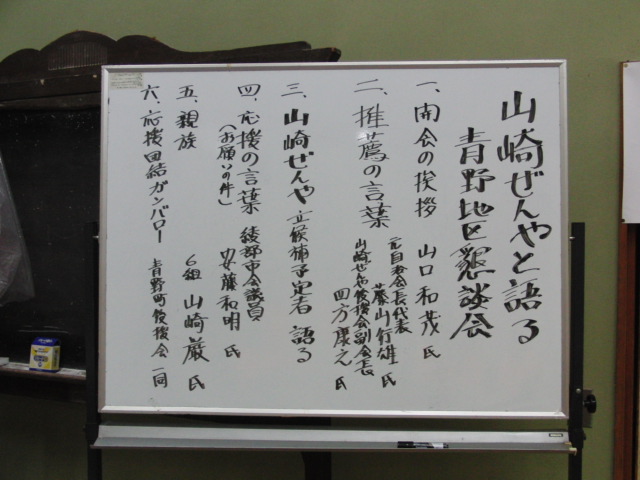 山崎ぜんやと語る
青野地区懇談会
一、開会の挨拶 山口和茂 氏
二、推薦の言葉 元自治会長代表 藤山行雄 氏
山崎ぜんや後援会副会長 四方康之 氏
三、山崎ぜんや立候補予定者 語る
四、応援の言葉 綾部市会議員
(お願いの件) 安藤和明 氏
五、親族 6組 山崎巌 氏
六、応援団結ガンバロー 青野町後援会一同